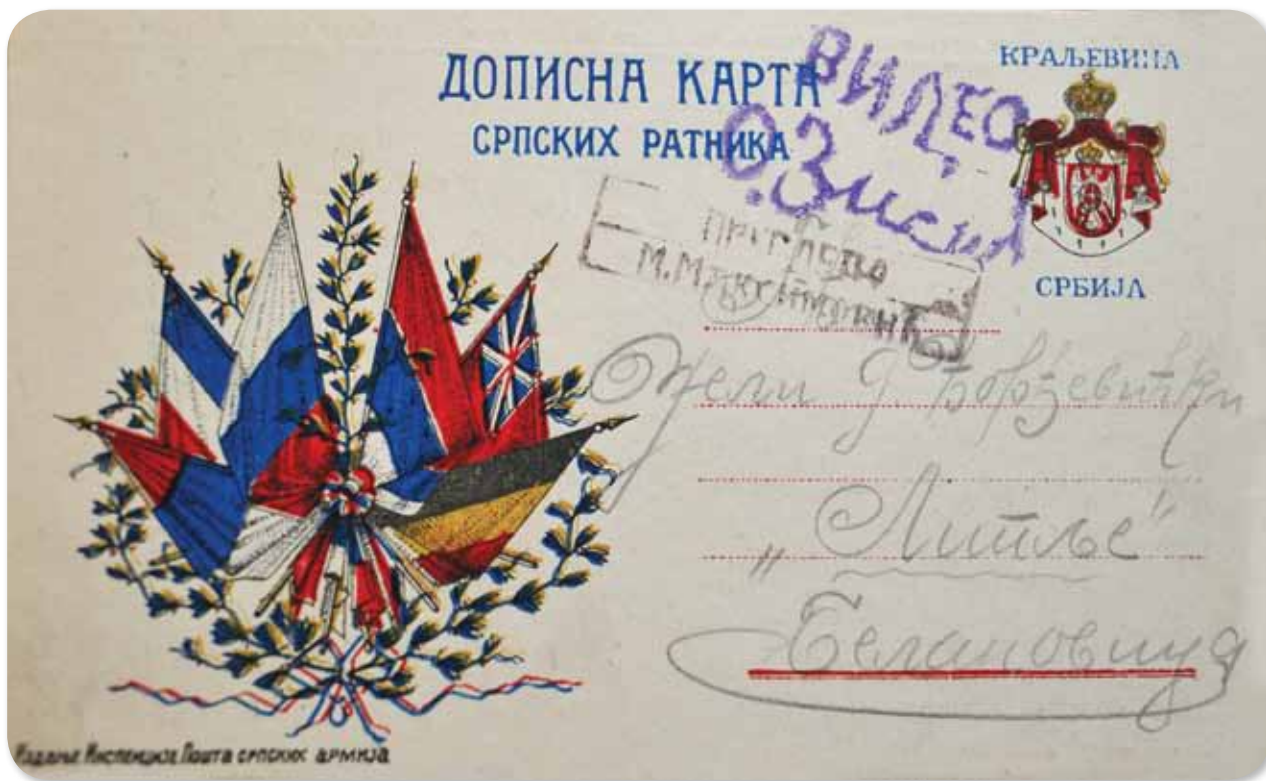 ДОПИСНА КАРТА
СРПСКИХ РАТНИКА
КРАЉЕВИНА
СРБИЈА
ВИДЕО
ПРЕГЛЕДАО
Д. Ђорђевићки
„Липље"
Белановица
Издање Инспекције Пошта српских армија